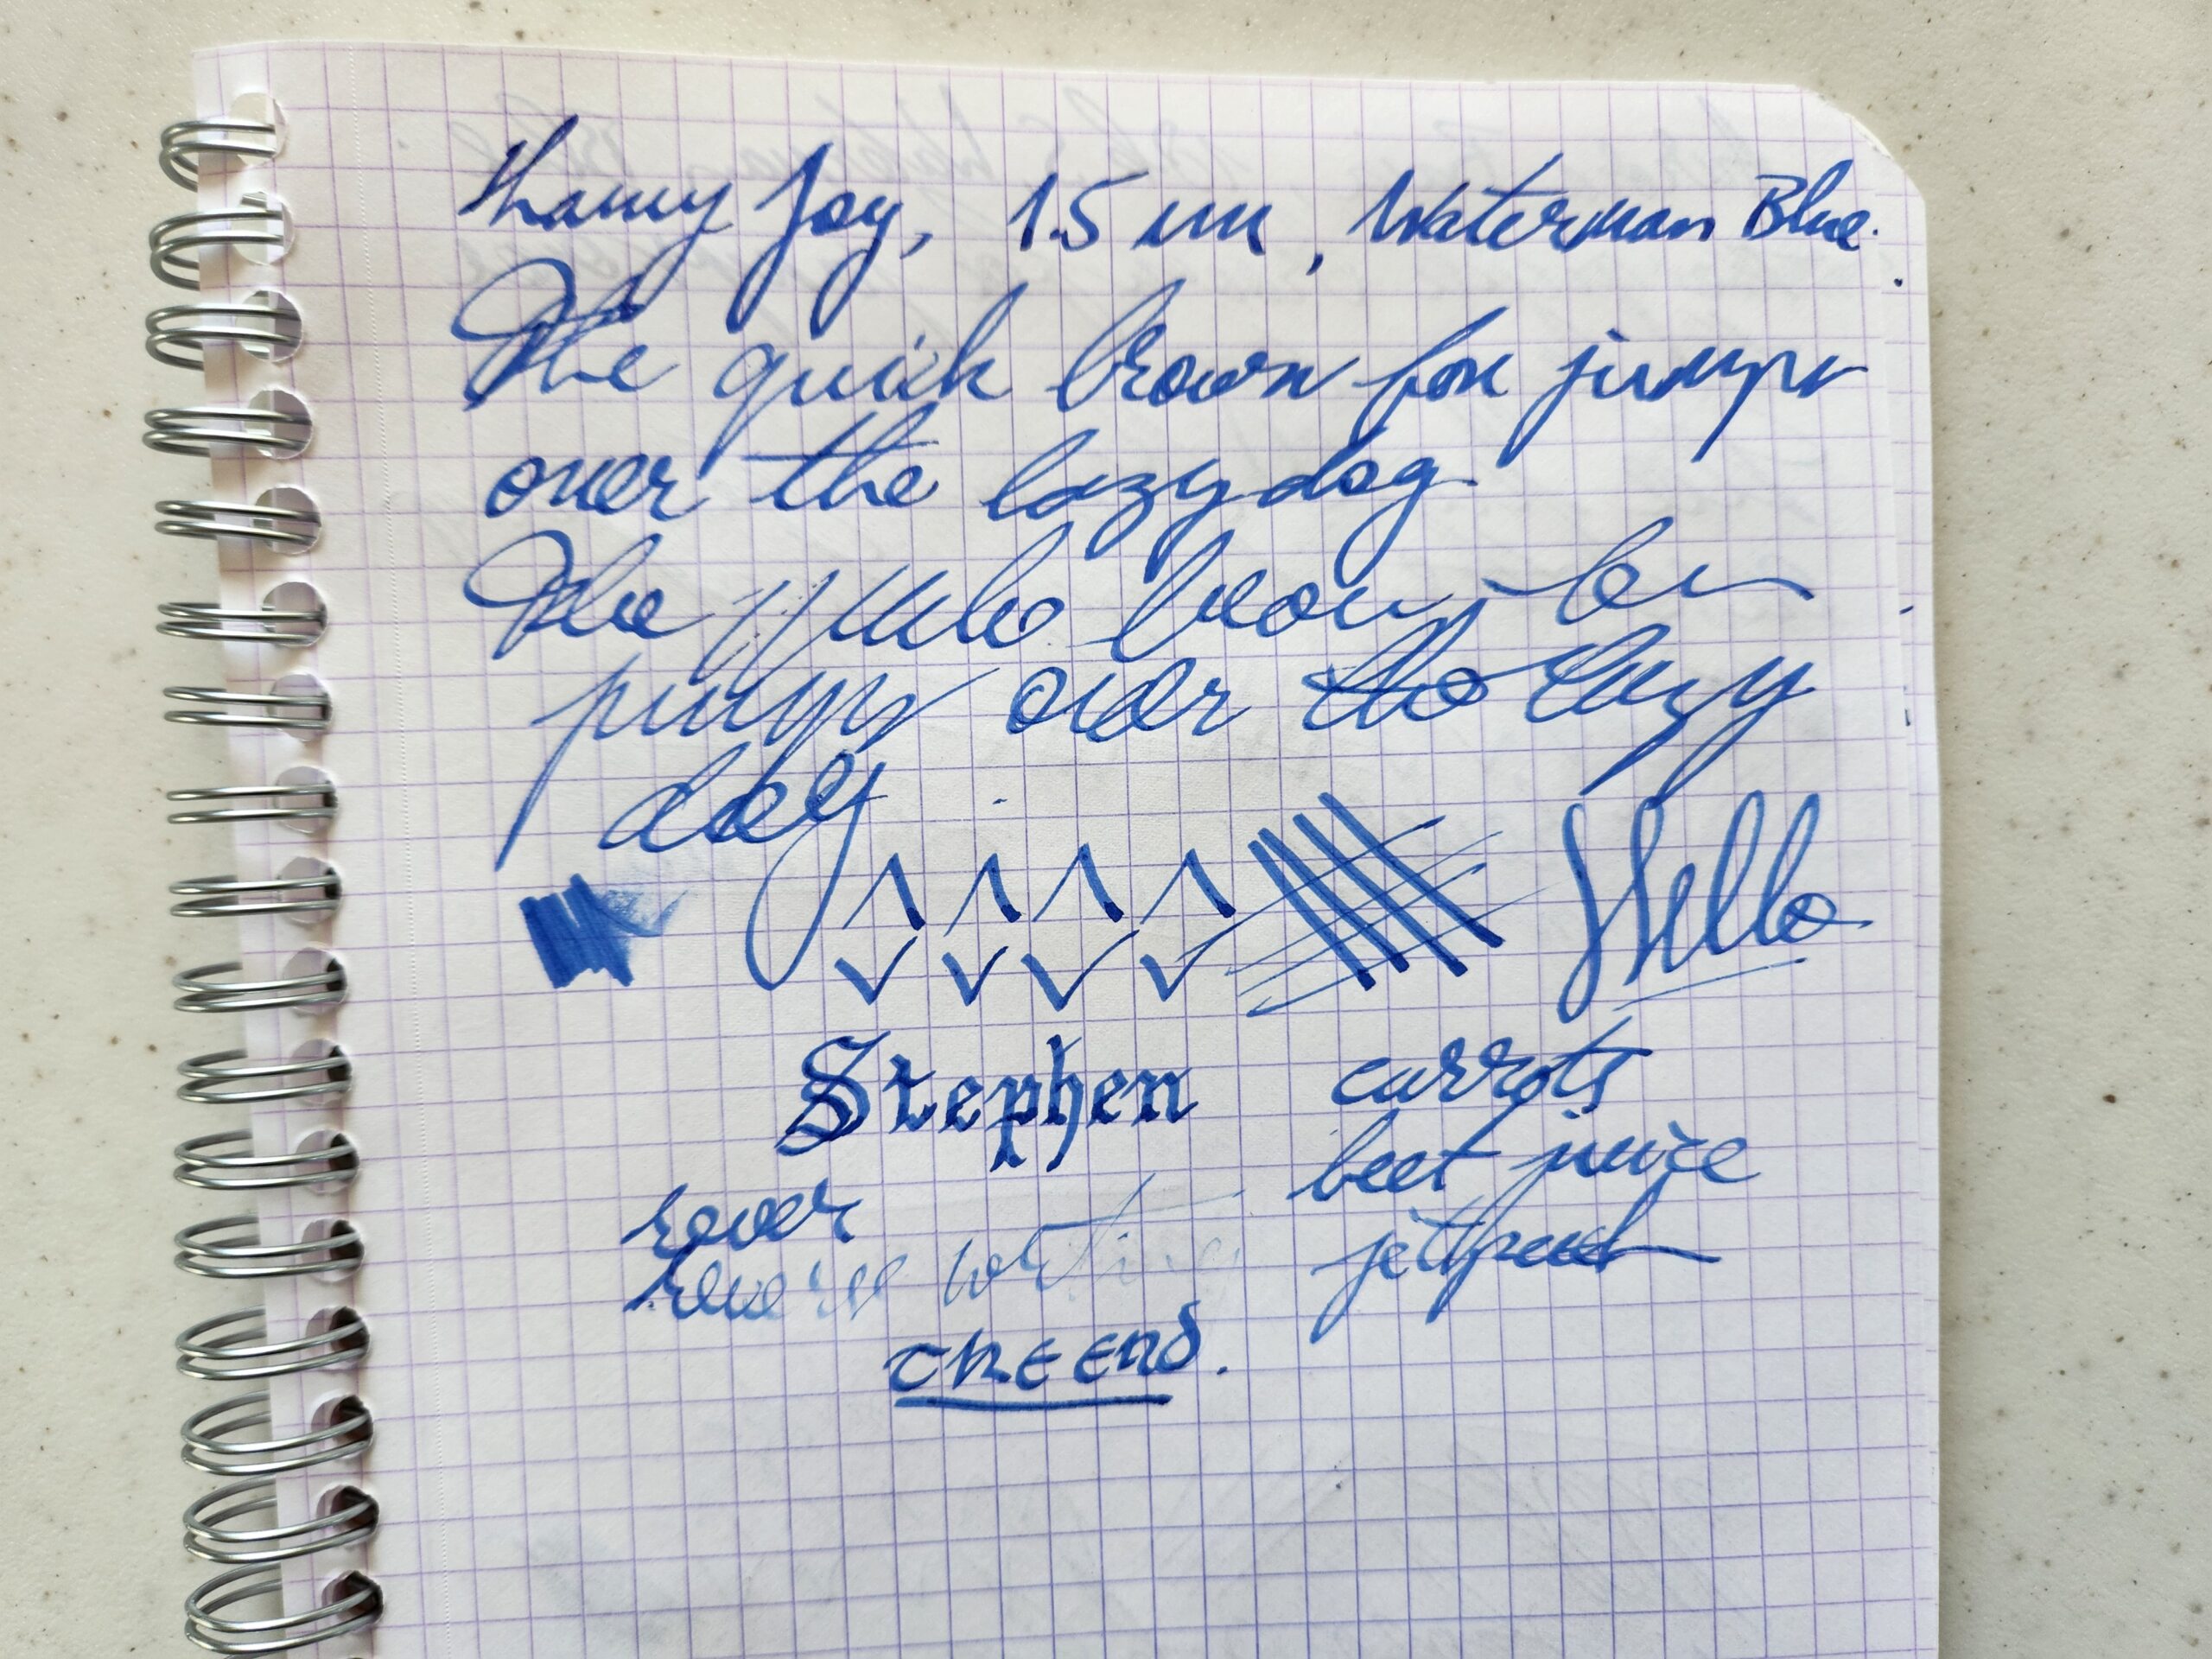 Lamy Joy, 1.5 mm, Waterman Blue.
The quick brown fox jumps
over the lazy dog.
The quick brown fox
jumps over the lazy
dog
Hello
Stephen
carrots
beet juice
rover
reverse writing
jetpack
THE END.